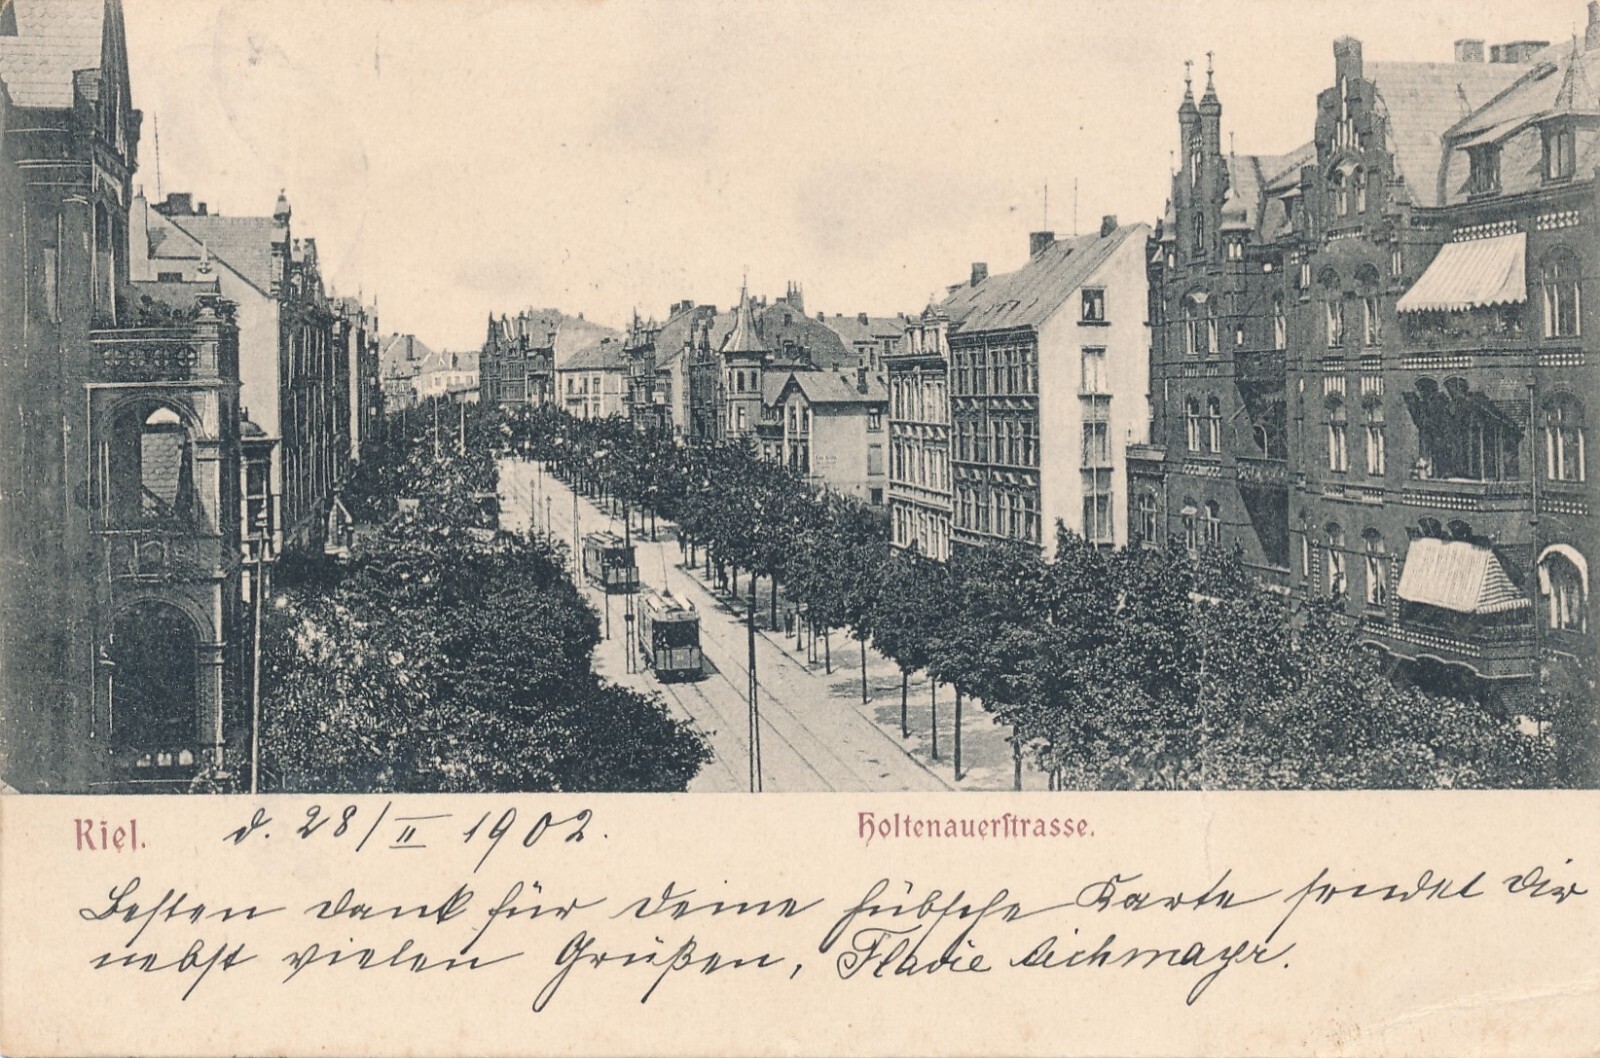 Kiel.
d. 28/II 1902.
Holtenauerſtrasse.
Besten Dank für Deine hübsche Karte sendet Dir
nebst vielen Grüßen, Flavie Aichmayr.